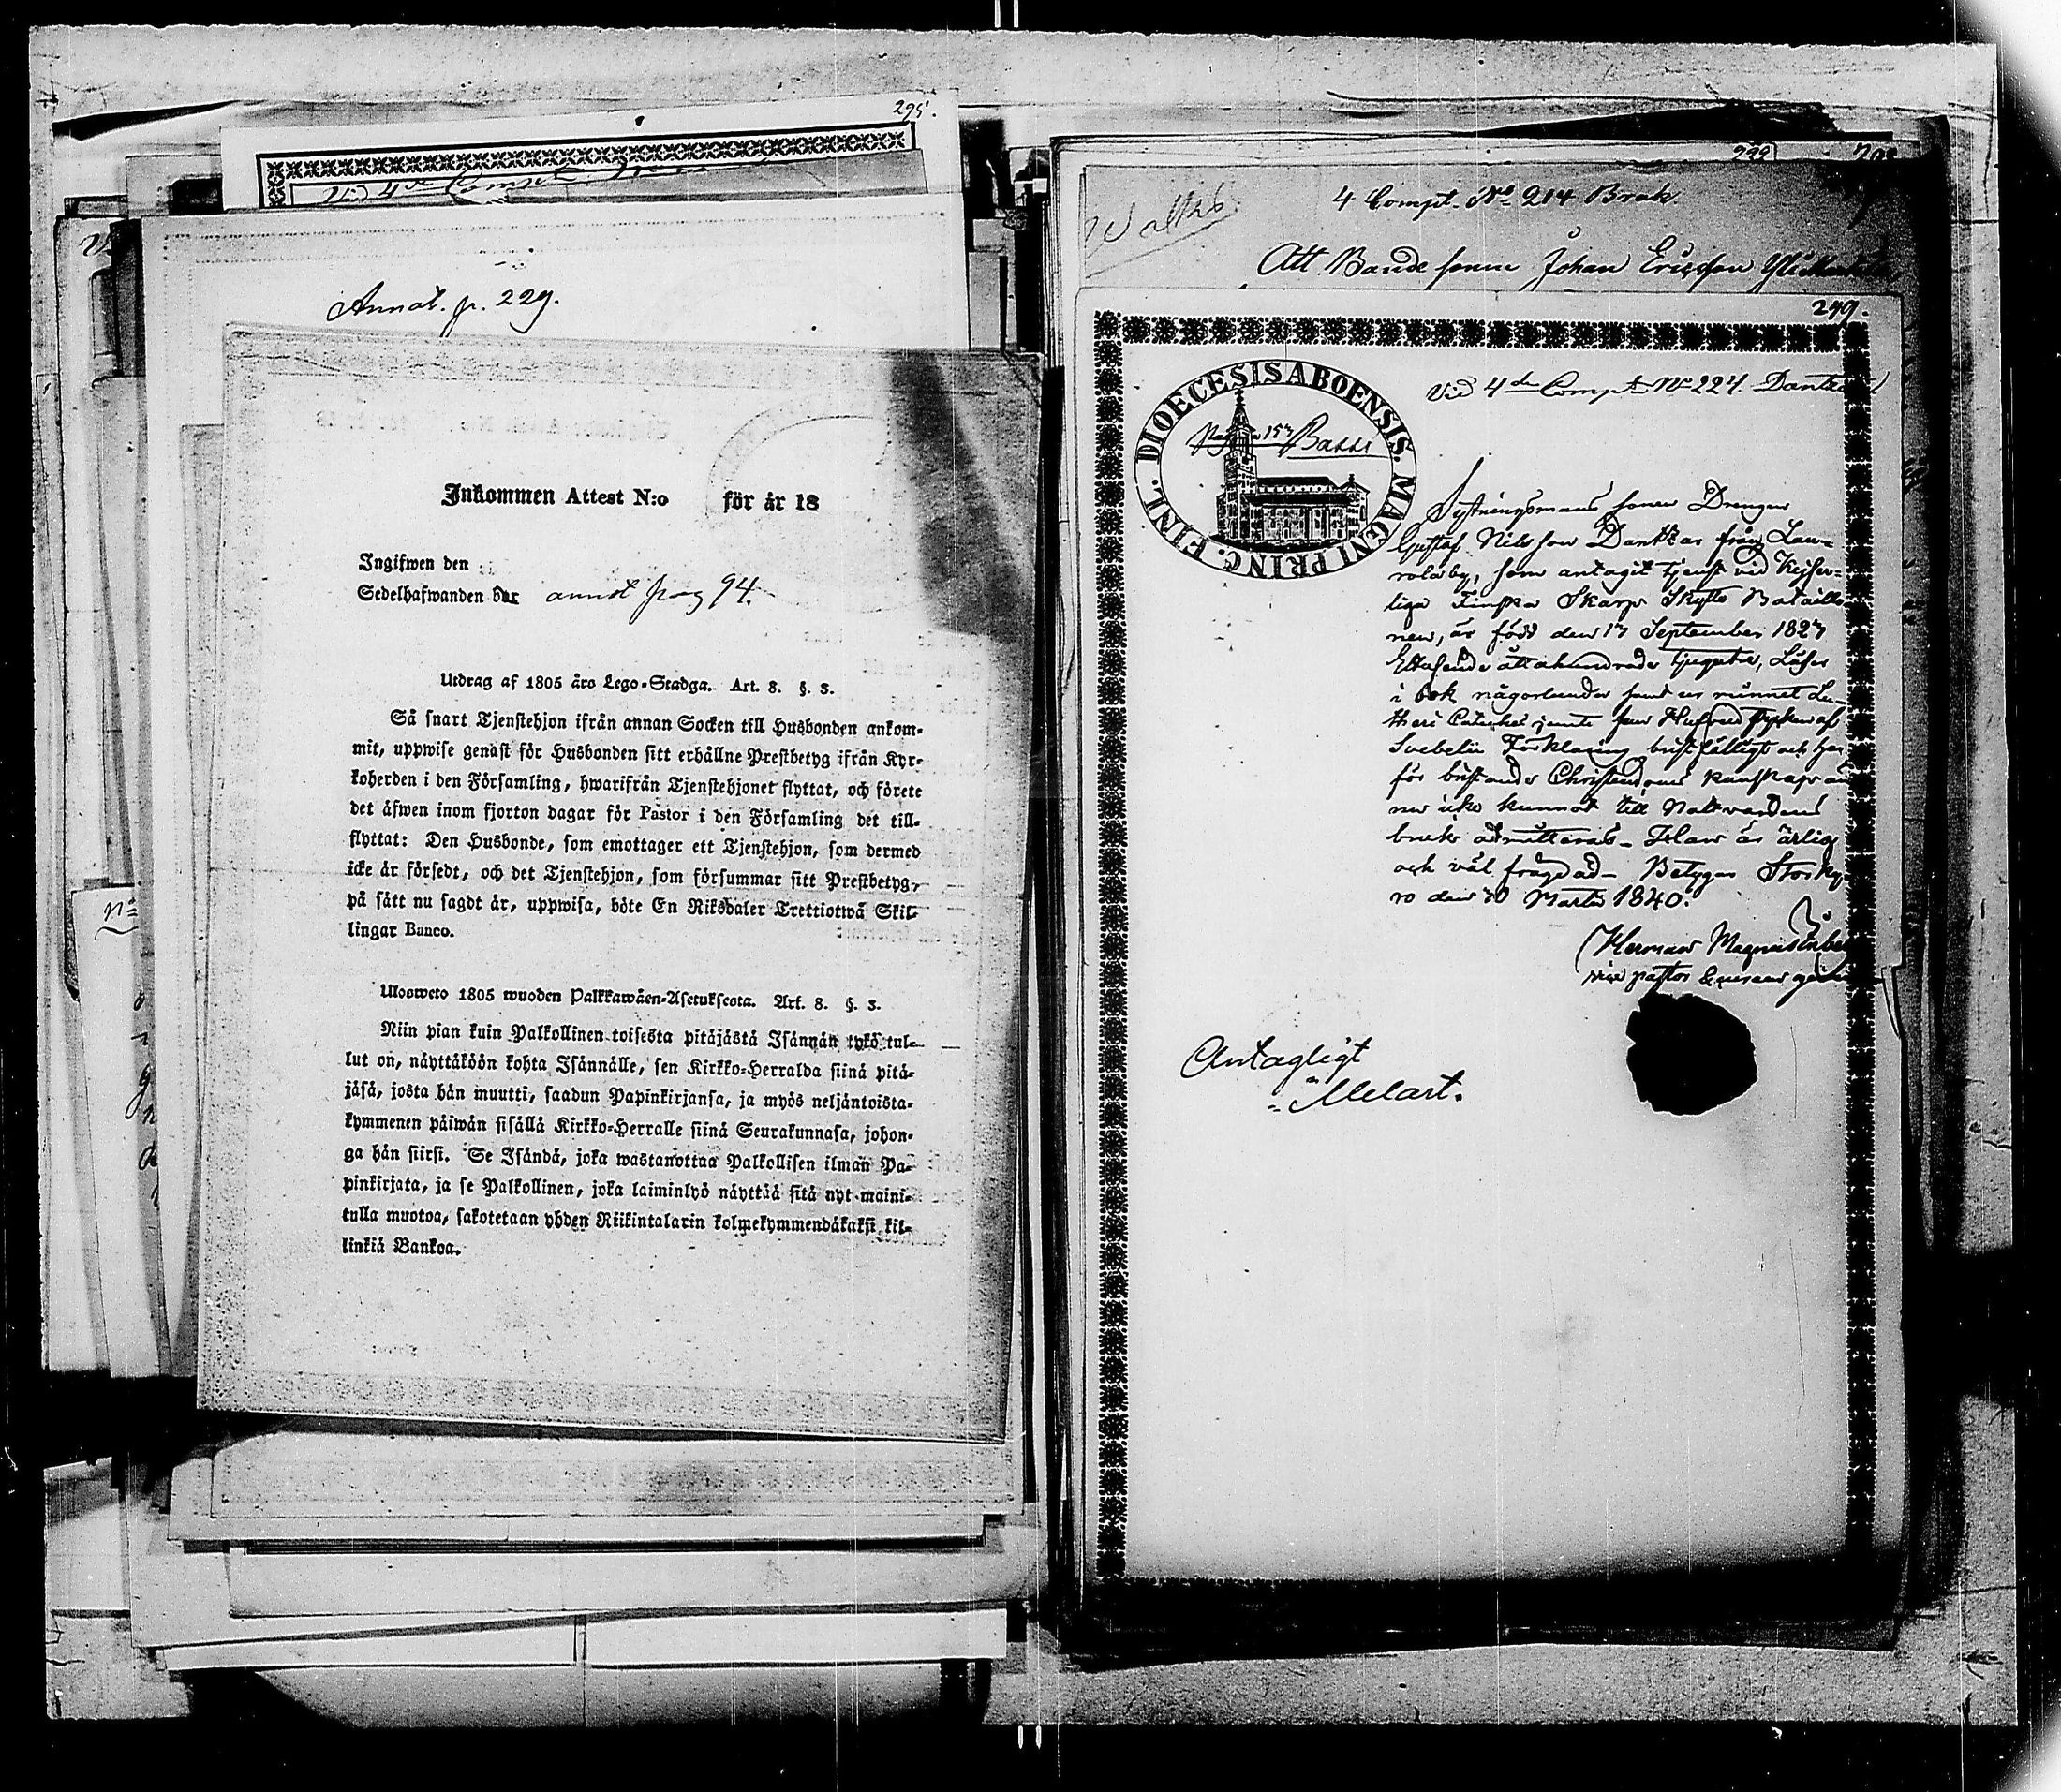 295.
Vid 4de Comp
Annot. p. 229.
Inkommen Attest N:o för år 18
Ingifwen den
Sedelhafwanden bär annot pag 94.
Utdrag af 1805 års Lego-Stadga. Art. 8. §. 3.
Så snart Tjenstehjon ifrån annan Socken till Husbonden ankom-
mit, uppwise genast för Husbonden sitt erhållne Prestbetyg ifrån Kyr-
koherden i den Församling, hwarifrån Tjenstehjonet flyttat, och förete
det äfwen inom fjorton dagar för Pastor i den Församling det till-
flyttat: Den Husbonde, som emottager ett Tjenstehjon, som dermed
icke är försedt, och det Tjenstehjon, som försummar sitt Prestbetyg,
på sätt nu sagdt är, uppwisa, böte En Riksdaler Trettiotwå Skil-
lingar Banco.
Ulosweto 1805 wuoden Palkkawäen-Asetuksesta. Art. 8. §. 3.
Niin pian kuin Palkollinen toisesta pitäjästä Isännän tykö tul-
lut on, näyttäköön kohta Isännälle, sen Kirkko-Herralda siinä pitä-
jäsä, josta hän muutti, saadun Papinkirjansa, ja myös neljäntoista-
kymmenen päiwän sisällä Kirkko-Herralle siinä Seurakunnasa, johon-
ga hän siirsi. Se Isändä, joka wastanottaa Palkollisen ilman Pa-
pinkirjata, ja se Palkollinen, joka laiminlyö näyttää sitä nyt maini-
tulla muotoa, sakotetaan yhden Riikintalarin kolmekymmendäkaksi kil-
linkiä Bankoa.
299
4 Compt. No 214 Brak
Att Bonde sonen Johan Ericsson
249.
DIOECESIS ABOENSIS. MAGNI PRINC. FINL.
Vid 4de Compt No 224. Dantza
Bassi
Sytningsmans sonen Drengen
Gustaf Nilsson Dantzar från Law-
rola by, som antagit tjenst vid Kejser-
liga Finska Skarp Skytte Bataillo-
nen, är född den 17 September 1823
Ettusende åttahundrade tjugutre, Läser
i bok någorlunda samt ur minnet Lu-
theri Cateches jemte
Svebelii Förklaring bristfälligt och har
för bristande Christendoms kunskap än-
nu icke kunnat till Nattvardens
bruk admitteras. Han är ärlig
och väl frägdad. Betygar Storky-
ro den 10 Martii 1840.
Herman Magnus
vice pastor
Antagligt
Melart.